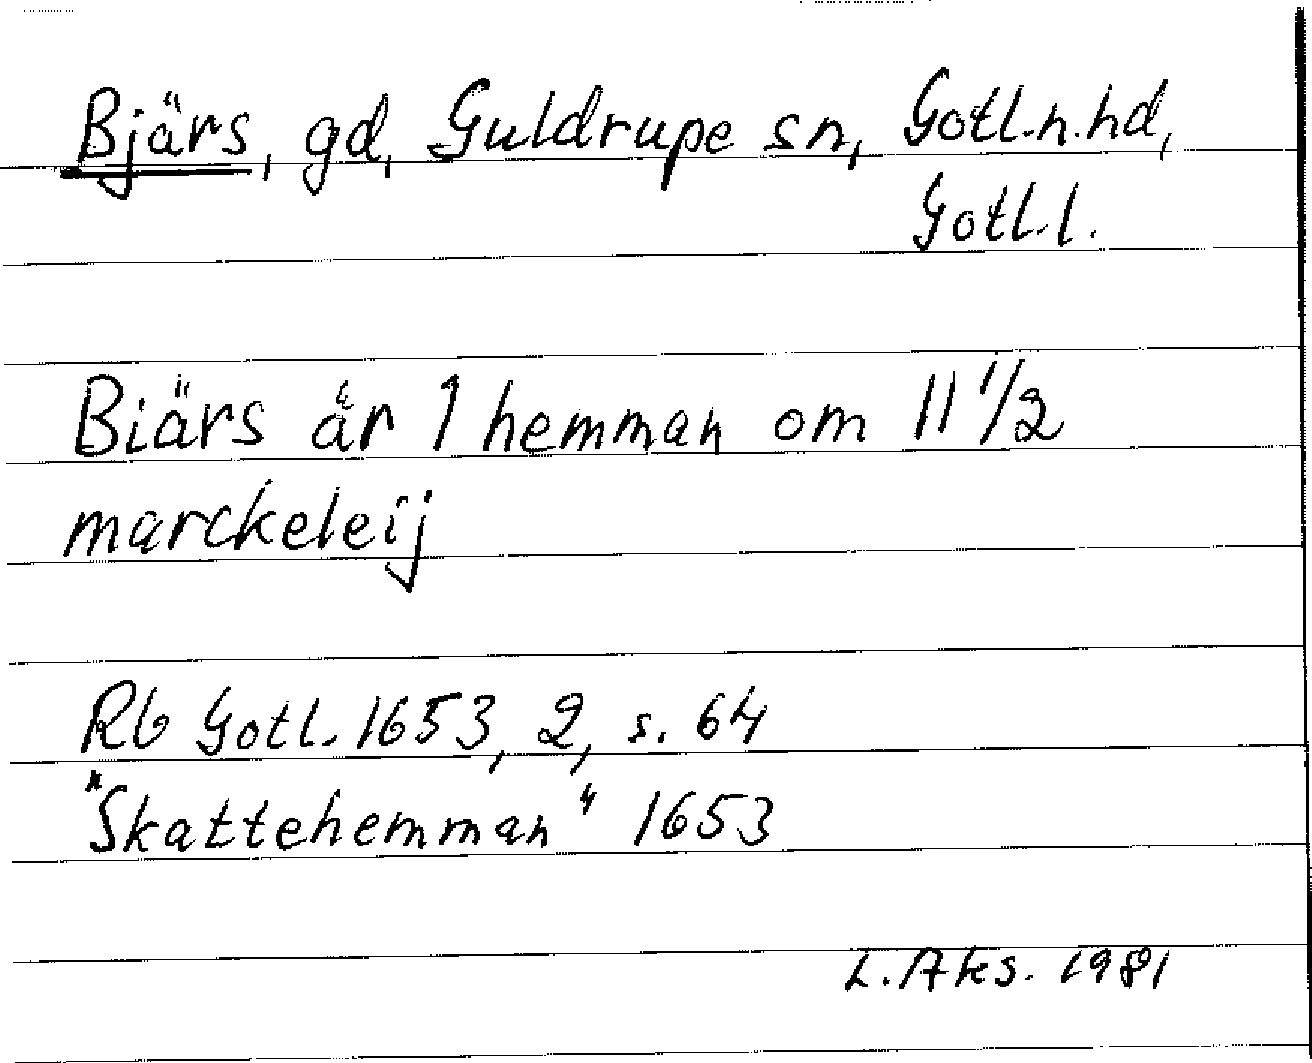 Bjärs, gd, Guldrupe sn, Gotl.n.hd,
Gotl.l.
Biärs är 1 hemman om 11 1/2
marckeleij
Rb Gotl. 1653, 2, s. 64
"Skattehemman" 1653
L. Aks. 1981